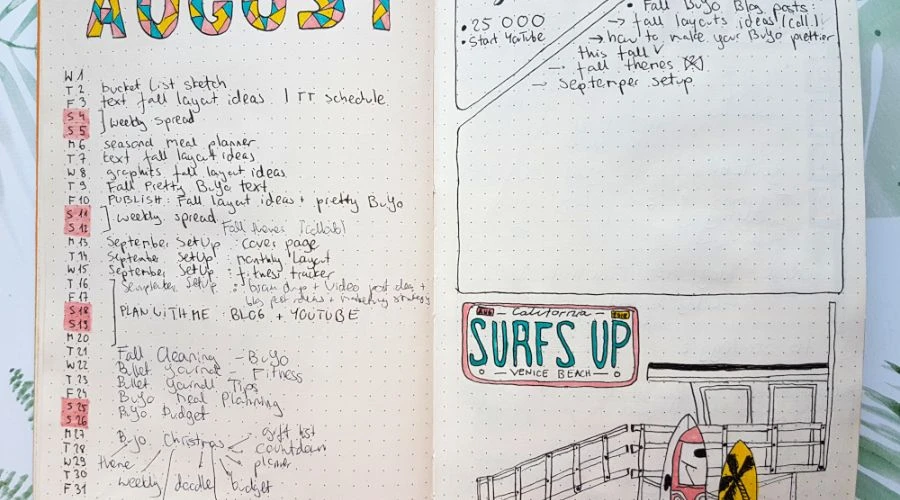 AUGUST
W 1
T 2 bucket list sketch
F 3 text fall layout ideas | TT schedule
S 4
S 5 weekly spread
M 6 seasonal meal planner
T 7 text fall layout ideas
W 8 graphics fall layout ideas
T 9 Fall Pretty BuJo text
F 10 PUBLISH: Fall layout ideas + pretty BuJo
S 11
S 12 weekly spread
Fall themes (collab)
M 13 September SetUp : cover page
T 14 September SetUp : monthly layout
W 15 September SetUp : fitness tracker
T 16 September SetUp : brain dump + video post ideas +
F 17 blog post ideas + marketing strategy
S 18 PLAN WITH ME : BLOG + YOUTUBE
S 19
M 20
T 21 Fall Cleaning - BuJo
W 22 Bullet Journal - Fitness
T 23 Bullet Journal Tips
F 24 BuJo Meal Planning
S 25 BuJo Budget
S 26
M 27 BuJo Christmas gift list
T 28 countdown
W 29 theme planner
T 30 weekly doodle budget
F 31
• 25 000
• Start YouTube
• Fall BuJo Blog posts:
→ fall layouts ideas (coll.)
→ how to make your BuJo prettier
this fall ✓
→ fall themes
→ September setup
AUG California 2018
SURFS UP
VENICE BEACH